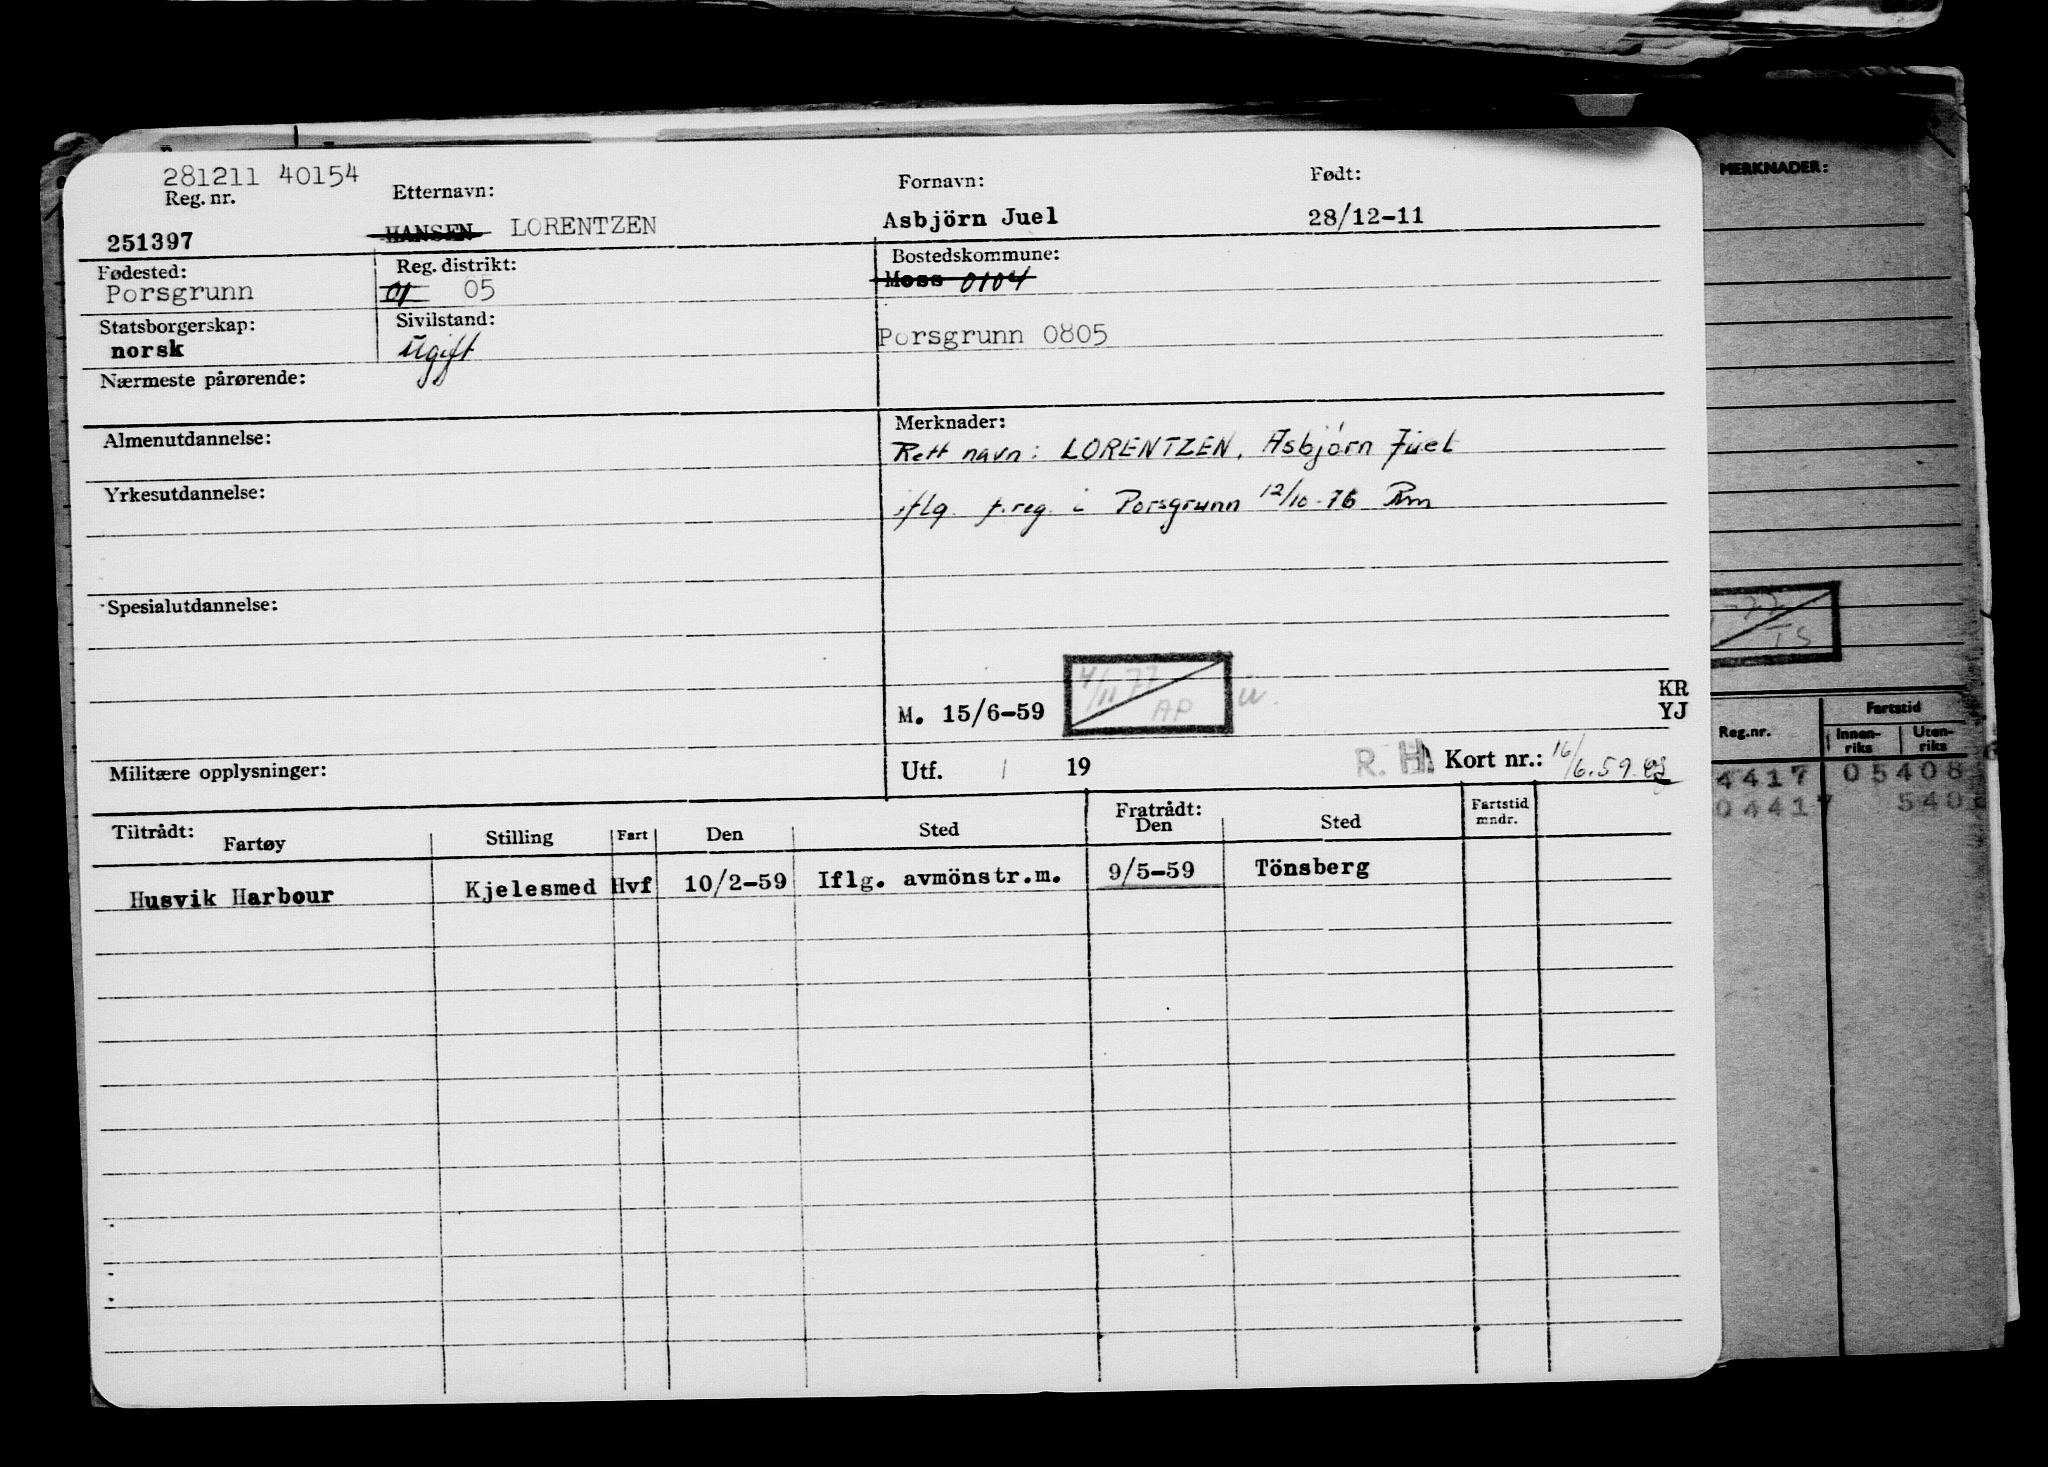 281211 40154
Reg. nr. Etternavn: Fornavn: Født:
251397 HANSEN LORENTZEN Asbjörn Juel 28/12-11
Fødested: Reg. distrikt: Bostedskommune:
Porsgrunn 01 05 Moss 0104
Statsborgerskap: Sivilstand:
norsk Ugift Porsgrunn 0805
Nærmeste pårørende:
Almenutdannelse: Merknader:
Rett navn: LORENTZEN, Asbjørn Juel
Yrkesutdannelse:
iflg. f.reg. i Porsgrunn 12/10-76 Rm
Spesialutdannelse:
4/11 77
AP
M. 15/6-59
KR
YJ
Militære opplysninger: Utf. 19 R. H. Kort nr.: 16/6.59
Tiltrådt: Fratrådt: Fartstid
Fartøy Stilling Fart Den Sted Den Sted mndr.
Husvik Harbour Kjelesmed Hvf 10/2-59 Iflg. avmönstr.m. 9/5-59 Tönsberg
MERKNADER:
-77
TS
Reg.nr. Fartstid
Innen-riks Uten-riks
4417 05408
04417 540